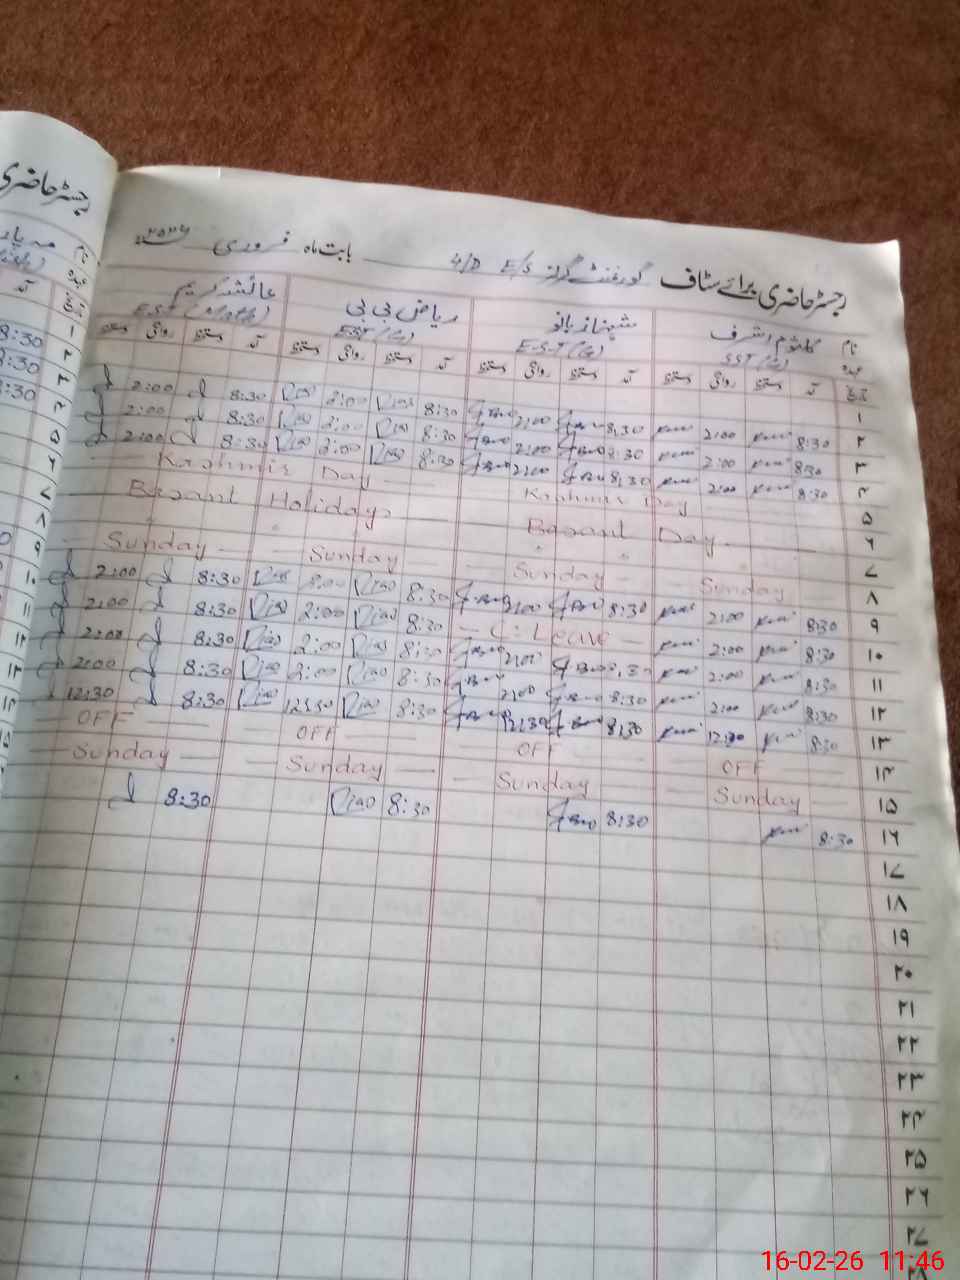 رجسٹر حاضری برائے سٹاف گورنمنٹ گرلز E/S 4/D بابت ماہ فروری ۲۰۲۶
رجسٹر حاضری
نام کلثوم اشرف شہناز بانو ریاض بی بی عائشہ کریم
عہدہ SST (G) E.S.T (G) EST (G) E.S.T (Math)
تاریخ آمد دستخط روانگی دستخط آمد دستخط روانگی دستخط آمد دستخط روانگی دستخط آمد دستخط روانگی دستخط
۱
2:00 8:30 2:00 8:30 2:00 8:30 2:00 8:30 ۲
2:00 8:30 2:00 8:30 2:00 8:30 2:00 8:30 ۳
2:00 8:30 2:00 8:30 2:00 8:30 2:00 8:30 ۴
Kashmir Day Kashmir Day ۵
Basant Holiday Basant Day ۶
۷
Sunday Sunday Sunday Sunday ۸
2:00 8:30 2:00 Riaz 8:30 2:00 8:30 2:00 8:30 ۹
2:00 8:30 2:00 Riaz 8:30 C. Leave 2:00 8:30 ۱۰
2:00 8:30 2:00 Riaz 8:30 2:00 8:30 2:00 8:30 ۱۱
2:00 8:30 2:00 Riaz 8:30 2:00 8:30 2:00 8:30 ۱۲
12:30 8:30 12:30 8:30 12:30 8:30 12:30 8:30 ۱۳
OFF OFF OFF OFF ۱۴
Sunday Sunday Sunday Sunday ۱۵
8:30 Riaz 8:30 8:30 8:30 ۱۶
۱۷
۱۸
۱۹
۲۰
۲۱
۲۲
۲۳
۲۴
۲۵
۲۶
۲۷
۲۸
8:30
8:30
8:30
16-02-26 11:46